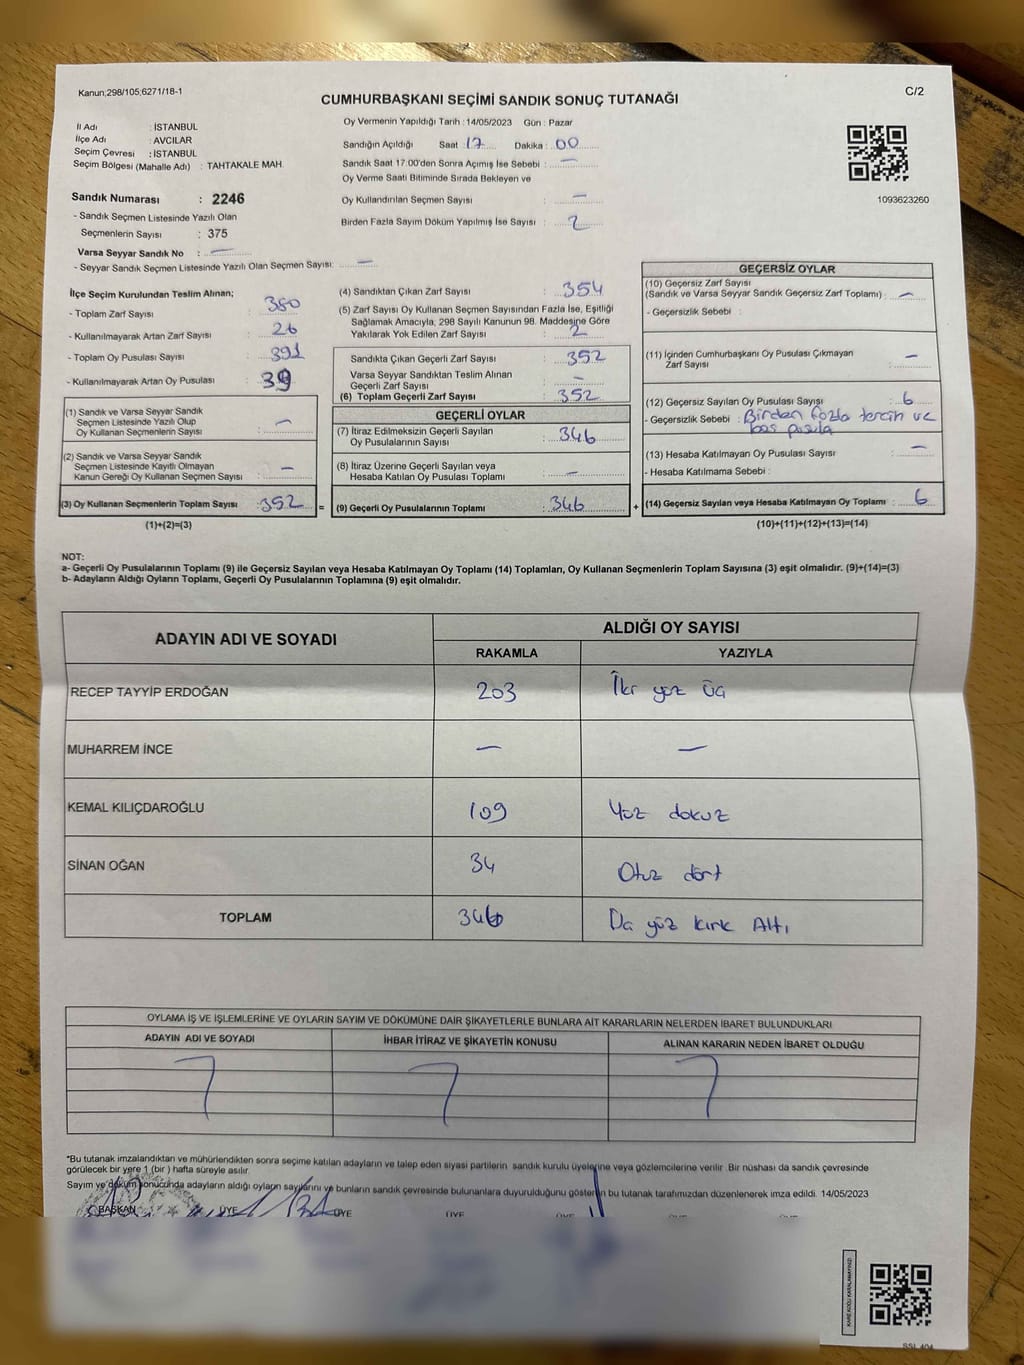 Kanun;298/105;6271/18-1
C/2
CUMHURBAŞKANI SEÇİMİ SANDIK SONUÇ TUTANAĞI
İl Adı : İSTANBUL
İlçe Adı : AVCILAR
Seçim Çevresi : İSTANBUL
Seçim Bölgesi (Mahalle Adı) : TAHTAKALE MAH.
Sandık Numarası : 2246
- Sandık Seçmen Listesinde Yazılı Olan
Seçmenlerin Sayısı : 375
Varsa Seyyar Sandık No : —
- Seyyar Sandık Seçmen Listesinde Yazılı Olan Seçmen Sayısı: —
Oy Vermenin Yapıldığı Tarih : 14/05/2023 Gün : Pazar
Sandığın Açıldığı Saat : 17 Dakika : 00
Sandık Saat 17:00'den Sonra Açılmış İse Sebebi : —
Oy Verme Saati Bitiminde Sırada Bekleyen ve
Oy Kullandırılan Seçmen Sayısı : —
Birden Fazla Sayım Döküm Yapılmış İse Sayısı : 2
1093623260
İlçe Seçim Kurulundan Teslim Alınan;
- Toplam Zarf Sayısı : 380
- Kullanılmayarak Artan Zarf Sayısı : 26
- Toplam Oy Pusulası Sayısı : 391
- Kullanılmayarak Artan Oy Pusulası : 39
(1) Sandık ve Varsa Seyyar Sandık
Seçmen Listesinde Yazılı Olup
Oy Kullanan Seçmenlerin Sayısı : —
(2) Sandık ve Varsa Seyyar Sandık
Seçmen Listesinde Kayıtlı Olmayan
Kanun Gereği Oy Kullanan Seçmen Sayısı : —
(3) Oy Kullanan Seçmenlerin Toplam Sayısı : 352
(1)+(2)=(3)
(4) Sandıktan Çıkan Zarf Sayısı : 354
(5) Zarf Sayısı Oy Kullanan Seçmen Sayısından Fazla İse, Eşitliği
Sağlamak Amacıyla, 298 Sayılı Kanunun 98. Maddesine Göre
Yakılarak Yok Edilen Zarf Sayısı : 2
Sandıkta Çıkan Geçerli Zarf Sayısı : 352
Varsa Seyyar Sandıktan Teslim Alınan
Geçerli Zarf Sayısı : —
(6) Toplam Geçerli Zarf Sayısı : 352
GEÇERLİ OYLAR
(7) İtiraz Edilmeksizin Geçerli Sayılan
Oy Pusulalarının Sayısı : 346
(8) İtiraz Üzerine Geçerli Sayılan veya
Hesaba Katılan Oy Pusulaları Toplamı : —
= (9) Geçerli Oy Pusulalarının Toplamı : 346
GEÇERSİZ OYLAR
(10) Geçersiz Zarf Sayısı
(Sandık ve Varsa Seyyar Sandık Geçersiz Zarf Toplamı) : —
- Geçersizlik Sebebi :
(11) İçinden Cumhurbaşkanı Oy Pusulası Çıkmayan
Zarf Sayısı : —
(12) Geçersiz Sayılan Oy Pusulası Sayısı : 6
- Geçersizlik Sebebi : Birden fazla tercih ve
boş pusula
(13) Hesaba Katılmayan Oy Pusulası Sayısı : —
- Hesaba Katılmama Sebebi :
+ (14) Geçersiz Sayılan veya Hesaba Katılmayan Oy Toplamı : 6
(10)+(11)+(12)+(13)=(14)
NOT:
a- Geçerli Oy Pusulalarının Toplamı (9) ile Geçersiz Sayılan veya Hesaba Katılmayan Oy Toplamı (14) Toplamları, Oy Kullanan Seçmenlerin Toplam Sayısına (3) eşit olmalıdır. (9)+(14)=(3)
b- Adayların Aldığı Oyların Toplamı, Geçerli Oy Pusulalarının Toplamına (9) eşit olmalıdır.
ADAYIN ADI VE SOYADI
ALDIĞI OY SAYISI
RAKAMLA YAZIYLA
RECEP TAYYİP ERDOĞAN 203 İki yüz üç
MUHARREM İNCE — —
KEMAL KILIÇDAROĞLU 109 Yüz dokuz
SİNAN OĞAN 34 Otuz dört
TOPLAM 346 yüz kırk Altı
OYLAMA İŞ VE İŞLEMLERİNE VE OYLARIN SAYIM VE DÖKÜMÜNE DAİR ŞİKAYETLERLE BUNLARA AİT KARARLARIN NELERDEN İBARET BULUNDUKLARI
ADAYIN ADI VE SOYADI İHBAR İTİRAZ VE ŞİKAYETİN KONUSU ALINAN KARARIN NEDEN İBARET OLDUĞU
*Bu tutanak imzalandıktan ve mühürlendikten sonra seçime katılan adayların ve talep eden siyasi partilerin sandık kurulu üyelerine veya gözlemcilerine verilir. Bir nüshası da sandık çevresinde
görülecek bir yere 1 (bir ) hafta süreyle asılır.
Sayım ve döküm sonucunda adayların aldığı oyların sayılarını ve bunların sandık çevresinde bulunanlara duyurulduğunu gösteren bu tutanak tarafımızdan düzenlenerek imza edildi. 14/05/2023
BAŞKAN ÜYE ÜYE ÜYE ÜYE
KARE KODU KARALAMAYINIZ!